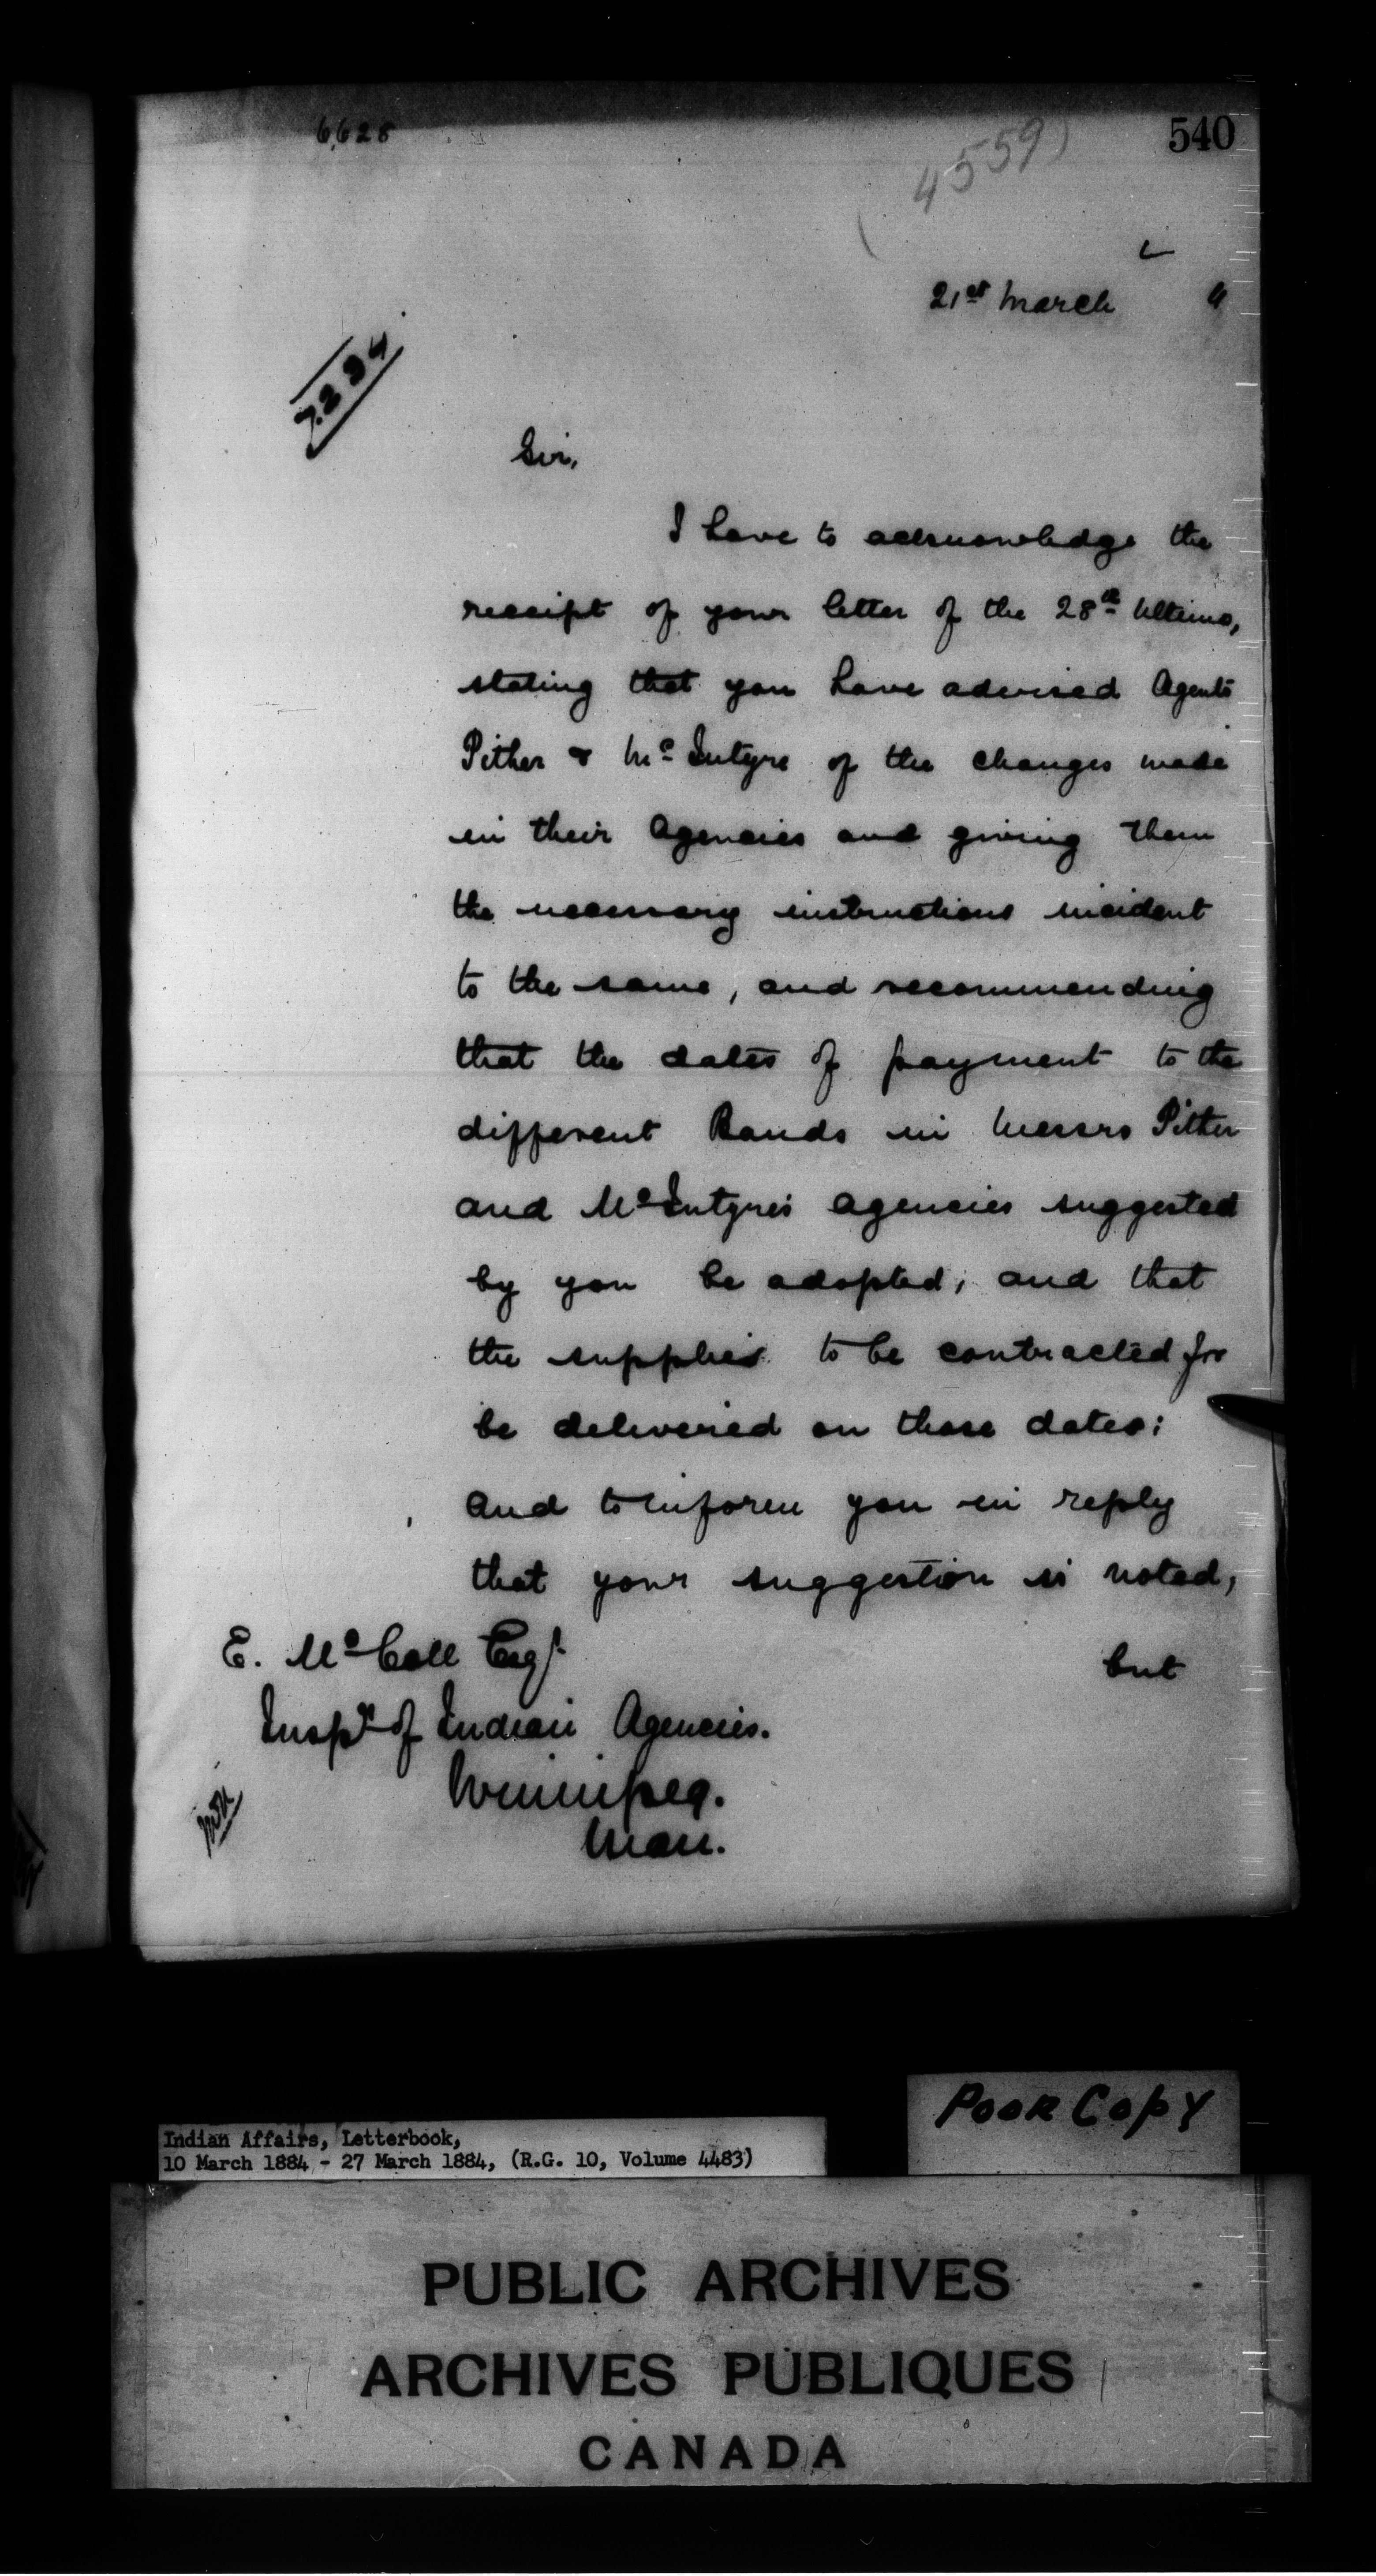 6,628
540
4559
21st March "
7294
Sir,
I have to acknowledge the
receipt of your letter of the 28th Ultimo,
stating that you have advised Agents
Pither & McIntyre of the changes made
in their Agencies and giving them
the necessary instructions incident
to the same, and recommending
that the dates of payment to the
different Bands in Messrs Pither
and McIntyre's agencies suggested
by you be adopted; and that
the supplies to be contracted for
be delivered on those dates;
and to inform you in reply
that your suggestion is noted,
but
E. McColl Esqr
Inspr of Indian Agencies.
Winnipeg.
Man.
Poor Copy
Indian Affairs, Letterbook,
10 March 1884 - 27 March 1884, (R.G. 10, Volume 4483)
PUBLIC ARCHIVES
ARCHIVES PUBLIQUES
CANADA